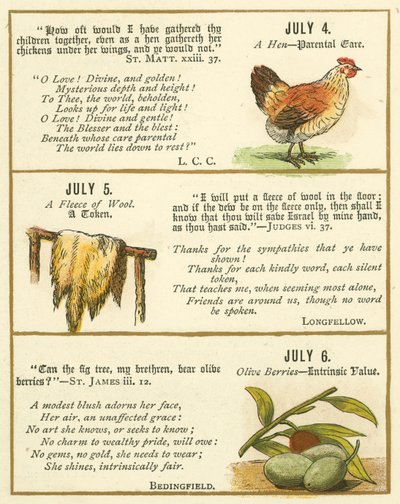 "How oft would I have gathered thy
children together, even as a hen gathereth her
chickens under her wings, and ye would not."
St. Matt. xxiii. 37.
"O Love! Divine, and golden!
Mysterious depth and height!
To Thee, the world, beholden,
Looks up for life and light!
O Love! Divine and gentle!
The Blesser and the blest:
Beneath whose care parental
The world lies down to rest?"
L. C. C.
JULY 4.
A Hen—Parental Care.
JULY 5.
A Fleece of Wool.
A Token.
"I will put a fleece of wool in the floor;
and if the dew be on the fleece only, then shall I
know that thou wilt save Israel by mine hand,
as thou hast said."—Judges vi. 37.
Thanks for the sympathies that ye have
shown!
Thanks for each kindly word, each silent
token,
That teaches me, when seeming most alone,
Friends are around us, though no word
be spoken.
Longfellow.
"Can the fig tree, my brethren, bear olive
berries?"—St. James iii. 12.
A modest blush adorns her face,
Her air, an unaffected grace:
No art she knows, or seeks to know;
No charm to wealthy pride, will owe:
No gems, no gold, she needs to wear;
She shines, intrinsically fair.
Bedingfield.
JULY 6.
Olive Berries—Intrinsic Value.